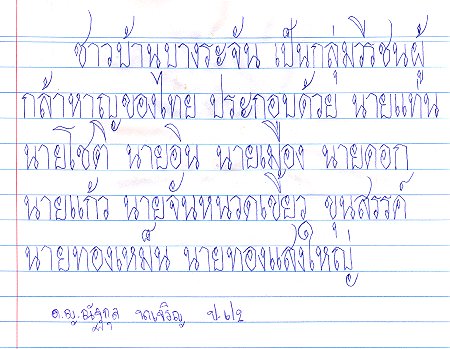 ชาวบ้านบางระจัน เป็นกลุ่มวีรชนผู้
กล้าหาญของไทย ประกอบด้วย นายแท่น
นายโชติ นายอิน นายเมือง นายดอก
นายแก้ว นายจันหนวดเขี้ยว ขุนสรรค์
นายทองเหม็น นายทองแสงใหญ่
ด.ญ.ณัฐกุล ป.๖/๒